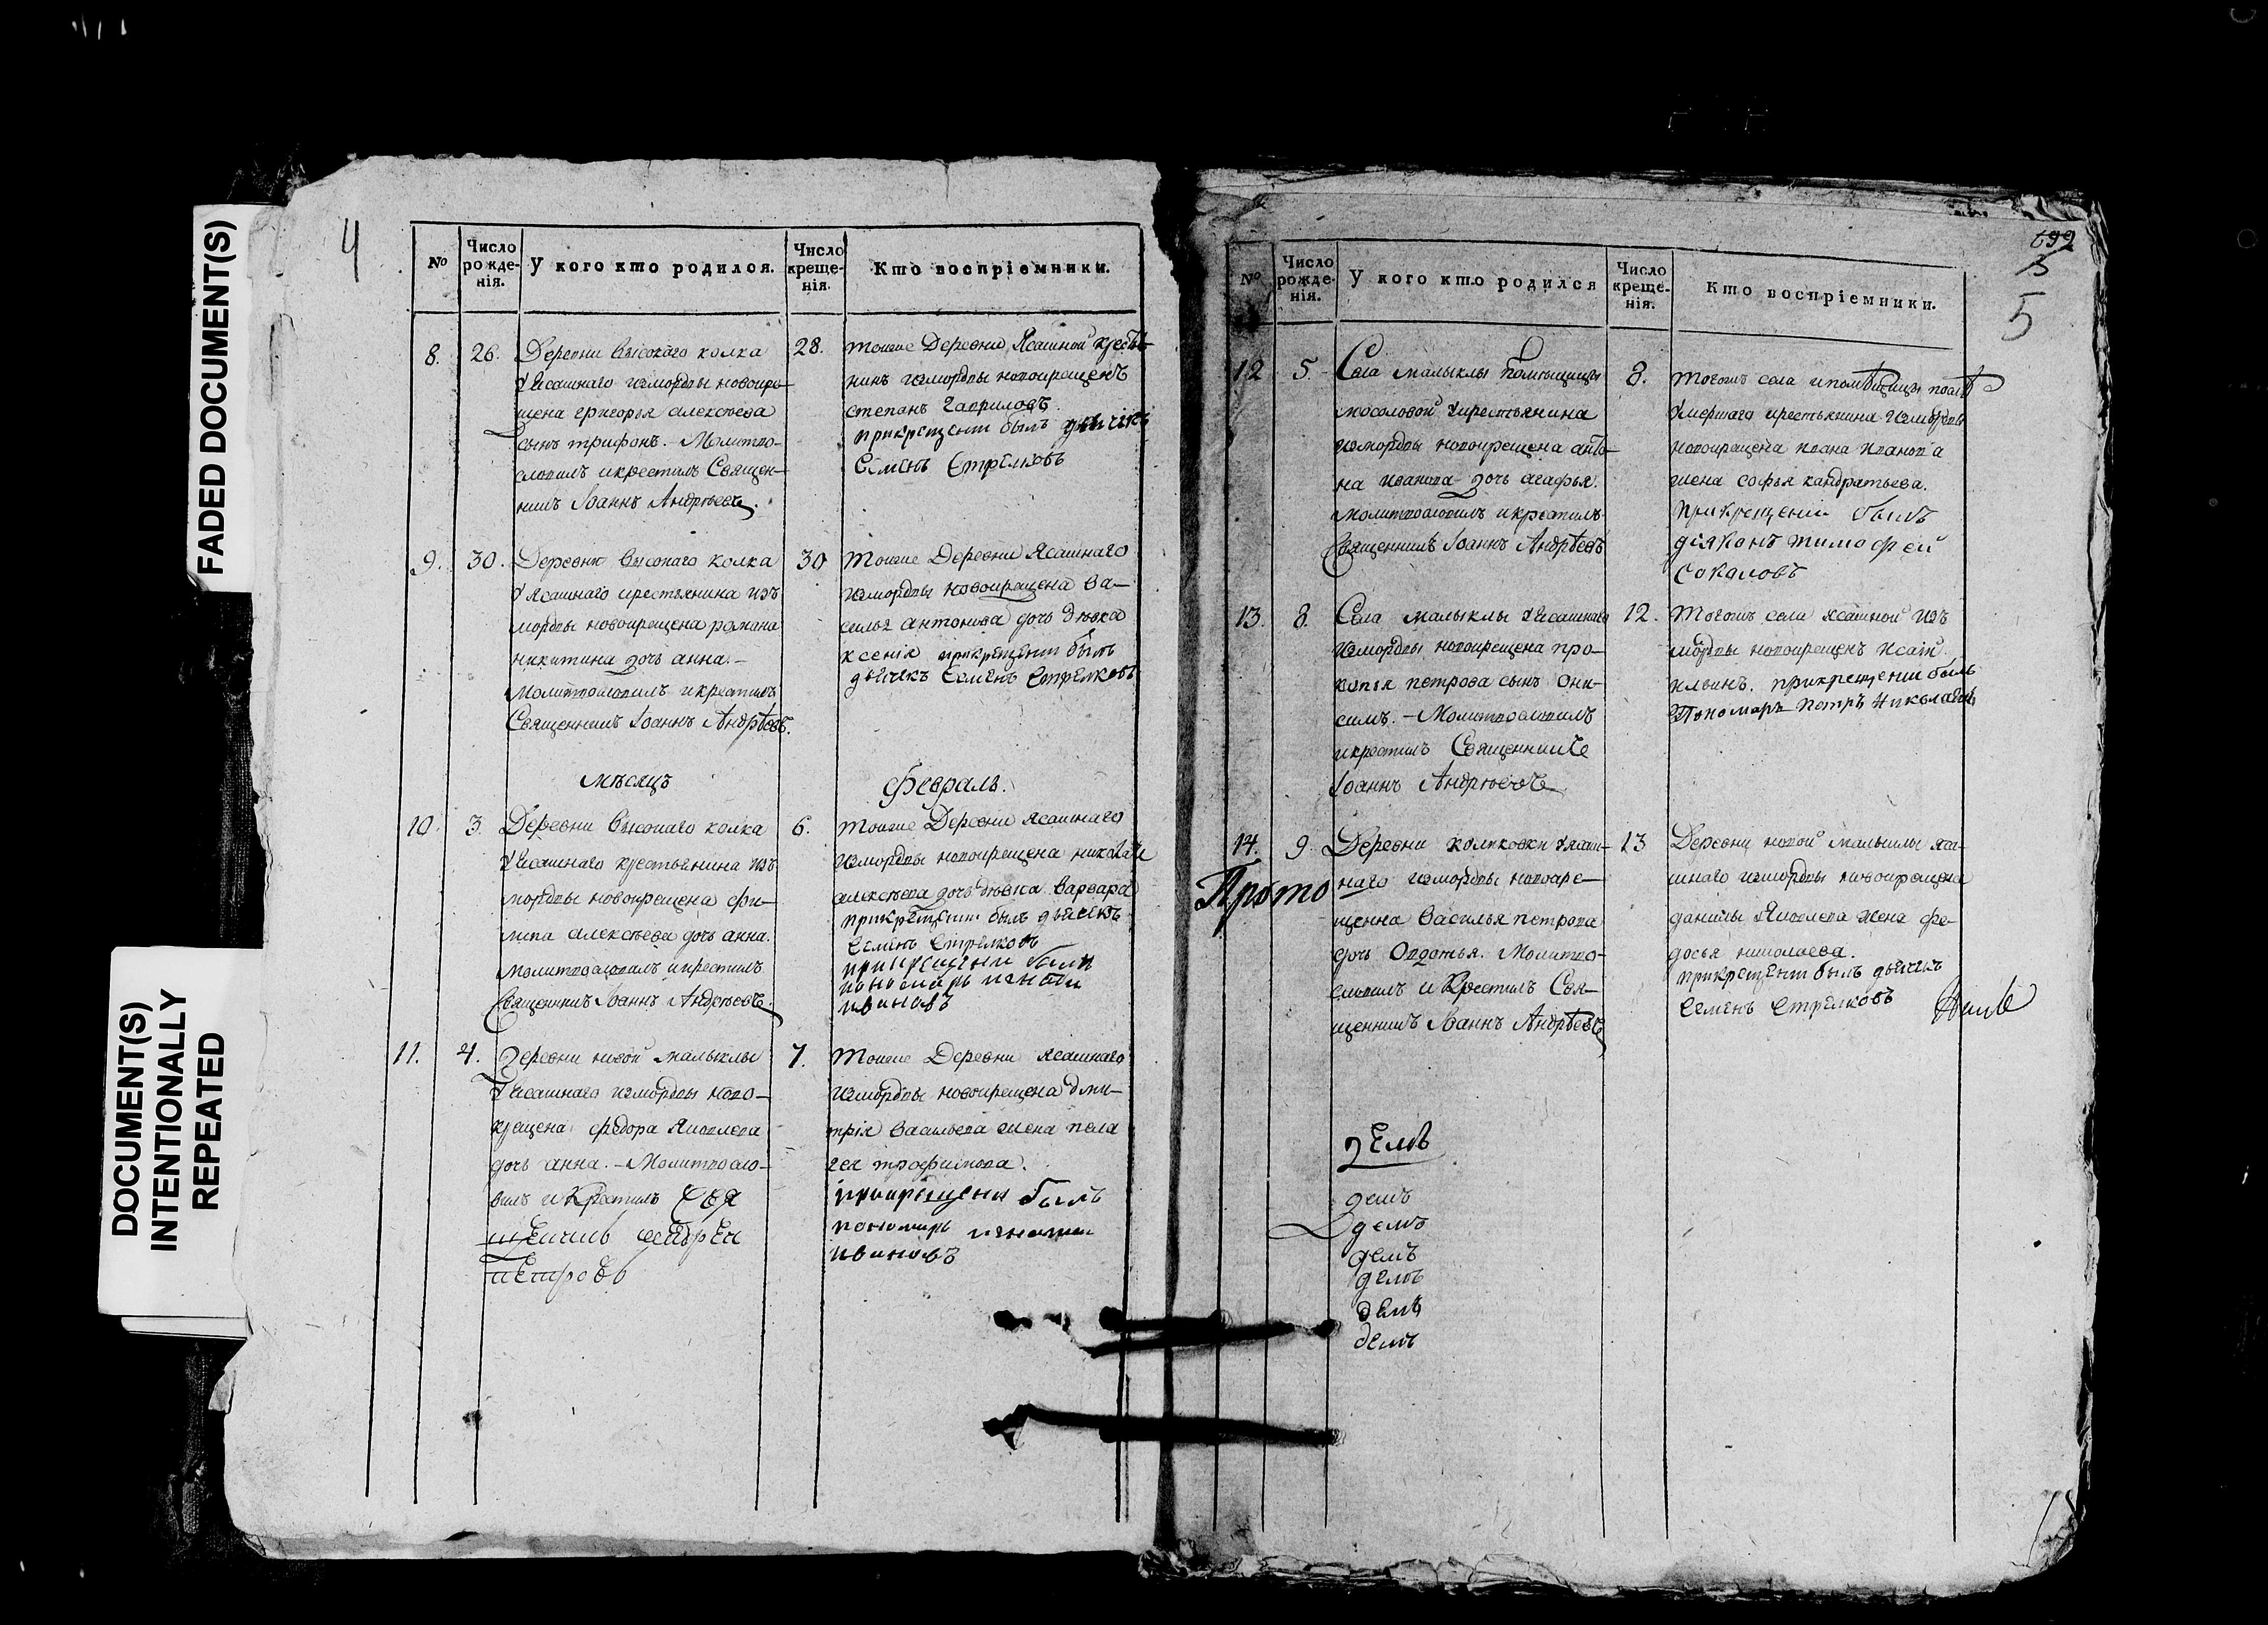 FADED DOCUMENT(S)
DOCUMENT(S)
INTENTIONALLY
REPEATED
4
№
Число рожде-нія.
У кого кто родился.
Число креще-нія.
Кто воспріемники.
8. 26.
Деревни высокаго колка
у Ясашнаго измордвы новокре-
щена григорья алексѣева
сынъ трифонъ. - Молитво-
словилъ икрестилъ Священ-
никъ Іоаннъ Андрѣевъ.
28.
тоиже Деревни Ясашной крестья-
нинъ измордвы новокрещенъ
степанъ гавриловъ.
прикрещени былъ дьячекъ
Семенъ Стрелковъ
9. 30.
Деревни высокаго колка
у Ясашнаго крестьянина изъ
мордвы новокрещена романа
никитина дочь анна. -
Молитвословилъ икрестилъ
Священникъ Іоаннъ Андрѣевъ.
30
Тоиже Деревни Ясашнаго
измордвы новокрещена ва-
силья антонова дочь дѣвка
ксенія прикрещени былъ
дьячекъ Семенъ Стрелковъ
мѣсяцъ
февраль.
10. 3.
Деревни высокаго колка
у Ясашнаго крестьянина изъ
мордвы новокрещена фи-
липа алексѣева дочь анна.
молитвословилъ икрестилъ
Священникъ Іоаннъ Андрѣевъ.
6.
тоиже Деревни Ясашнаго
измордвы новокрещена николая
алексѣева дочь дѣвка варвара
прикрещени былъ дьячекъ
Семенъ Стрелковъ
прикрещени были
пономарь
ивановъ
11. 4.
Деревни новой малыклы
у Ясашнаго измордвы ново-
крещена федора Яковлева
дочь анна. - Молитвосло-
вилъ и крестилъ Свя
щеникъ андреи
петровъ
7.
тоиже Деревни Ясашнаго
измордвы новокрещена дми-
трія васильева жена пела
гея трофимова.
прикрещени былъ
пономарь игнатеи
ивановъ
692
3
5
№
Число рожде-нія.
У кого кто родился
Число креще-нія.
Кто воспріемники.
12 5.
Села малыклы помѣщицы
мосоловой укрестьянина
измордвы новокрещена анто-
на иванова дочь агафья.
молитвословилъ икрестилъ
Священникъ Іоаннъ Андрѣевъ
8.
тогожъ села ипомѣщицы послѣ
умершаго крестьянина измордвы
новокрещена ивана иванова
жена софья кандратьева.
прикрещени былъ
діяконъ тимофеи
Соколовъ
13. 8.
Села малыклы у Ясашнаго
измордвы новокрещена про-
копья петрова сынъ они-
симъ. - Молитвословилъ
икрестилъ Священникъ
Іоаннъ Андрѣевъ
12.
тогожъ села ясашной изъ
мордвы новокрещенъ исай
ильинъ. прикрещени былъ
Пономарь Петръ Николаевъ
14. 9.
Деревни колковки уясаш-
наго измордвы новокре-
щенна василья петрова
дочь Овдотья. Молитво-
словилъ и крестилъ Свя-
щенникъ Іоаннъ Андрѣевъ
13
Деревни новой малыклы яса-
шнаго измордвы новокрещена
данилы Яковлева жена фе-
досья николаева.
прикрещени былъ дьячекъ
Семенъ Стрелковъ
Прото